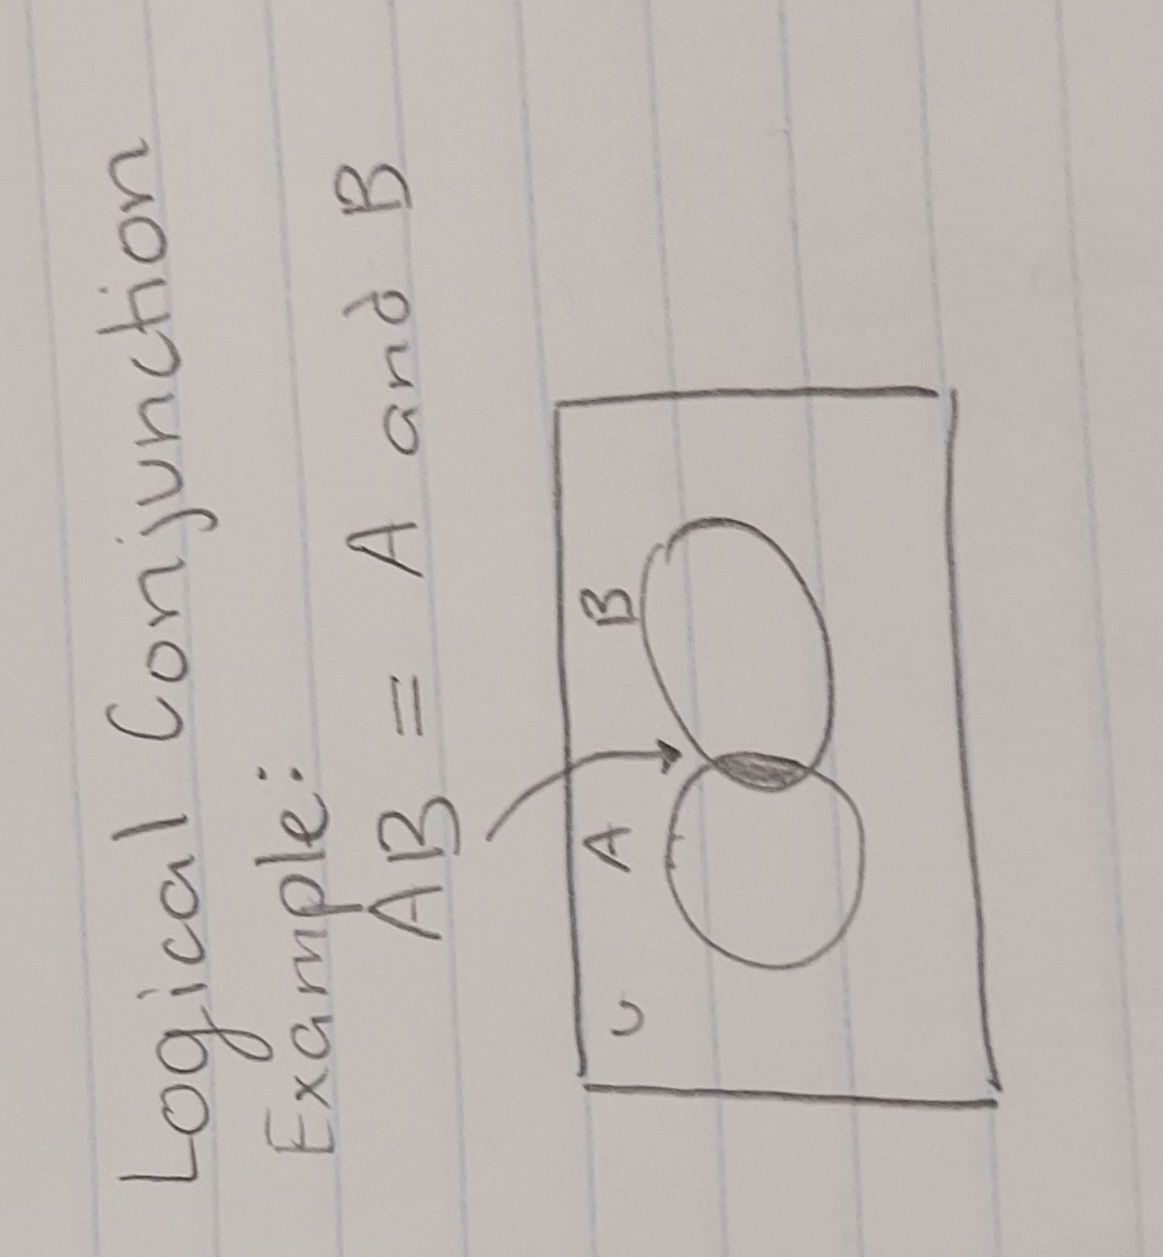 Logical Conjunction
Example:
AB = A and B
U A B